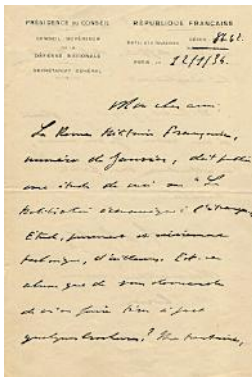 PRÉSIDENCE DU CONSEIL
CONSEIL SUPÉRIEUR
DE LA
DÉFENSE NATIONALE
SECRÉTARIAT GÉNÉRAL
RÉPUBLIQUE FRANÇAISE
HÔTEL DES INVALIDES
PARIS
Mon cher ami
La Revue Militaire Française,
numéro de Janvier, doit publier
une étude de moi sur "La
Mobilisation économique à l'étranger"
Etude, purement et
technique, d'ailleurs. Est-ce
abuser que de vous demander
de m'en faire tirer à part
quelques